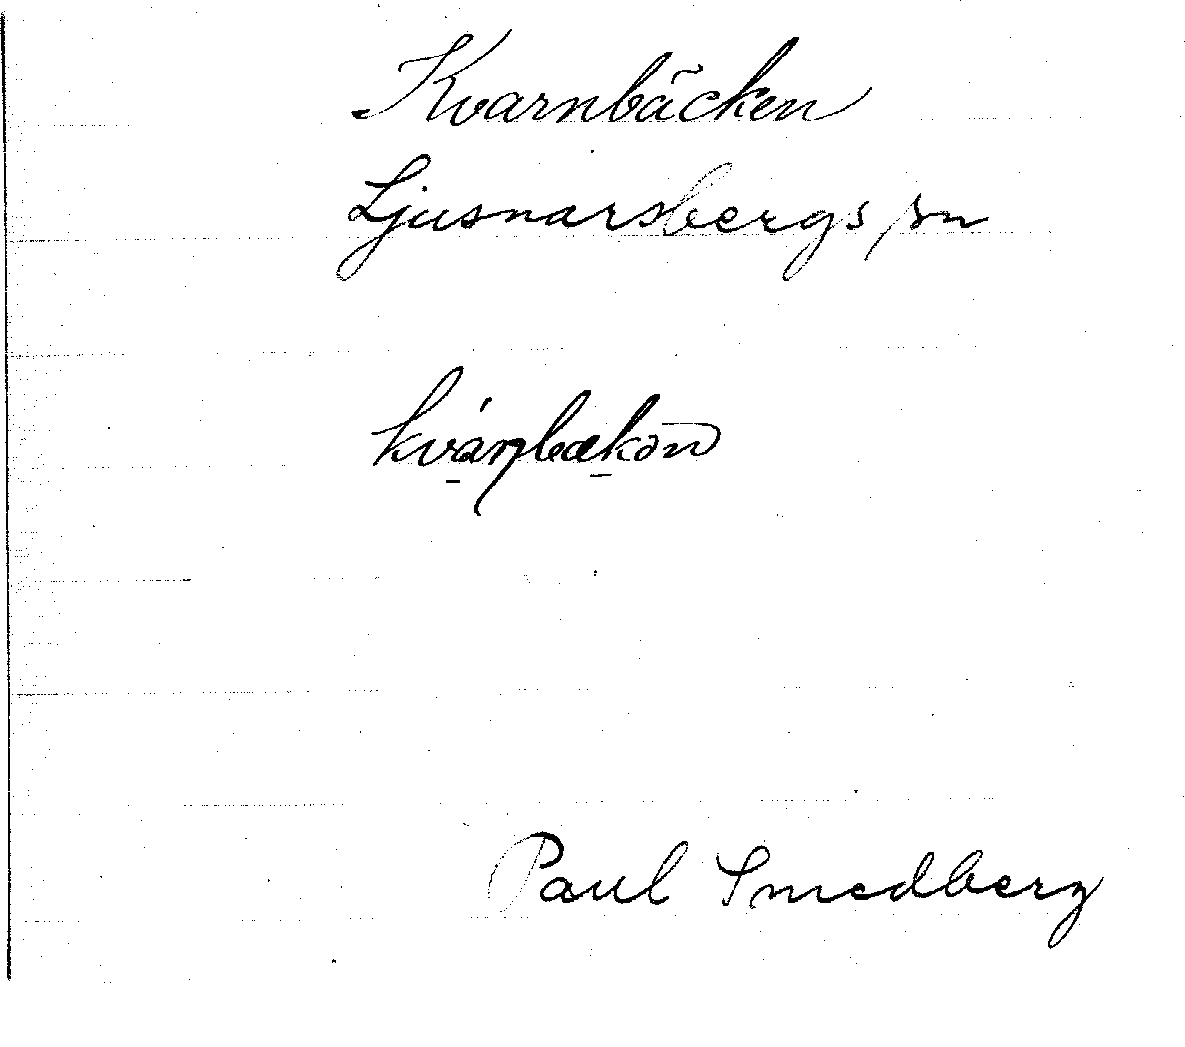 Kvarnbäcken
Ljusnarsbergs sn
kvánbækən
Paul Smedberg